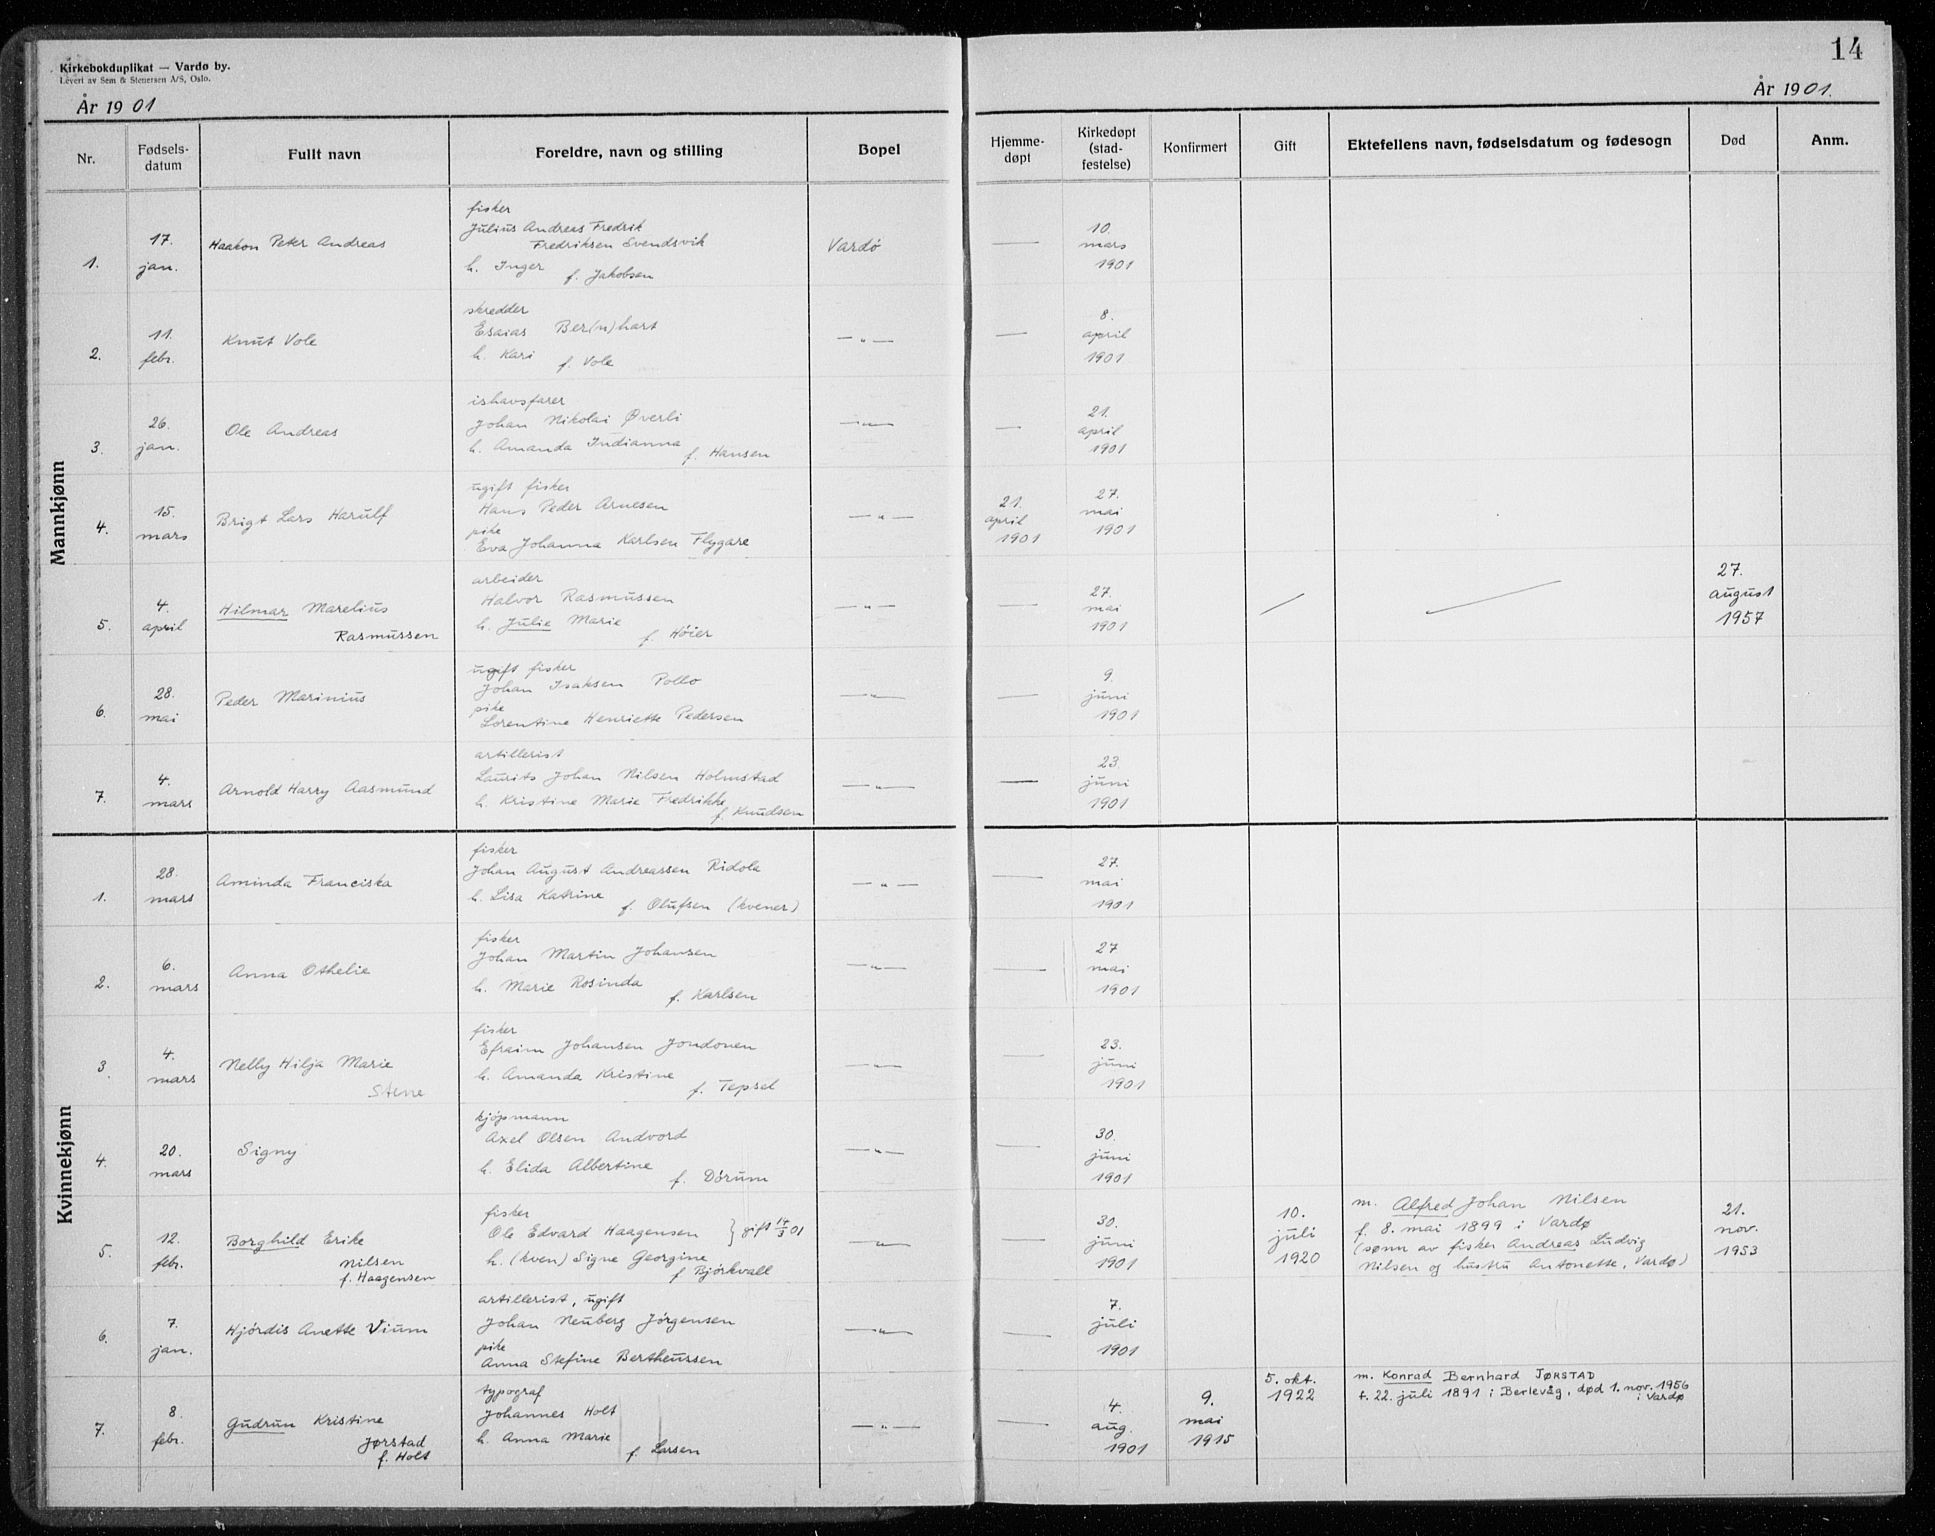 14
Kirkebokduplikat — Vardø by.
Levert av Sem & Stenersen A/S, Oslo.
År 1901
År 1901.
Nr.
Fødsels-
datum
Fullt navn
Foreldre, navn og stilling
Bopel
Hjemme-
døpt
Kirkedøpt
(stad-
festelse)
Konfirmert
Gift
Ektefellens navn, fødselsdatum og fødesogn
Død
Anm.
Mannkjønn
1.
17.
jan.
Haakon Peter Andreas
fisker
Julius Andreas Fredrik
Fredriksen Svendsvik
h. Inger f. Jakobsen
Vardö
—
10.
mars
1901
2.
11.
febr.
Knut Vole
skredder
Esaias Ber(n)hart
h. Kari f. Vole
— " —
—
8.
april
1901
3.
26.
jan.
Ole Andreas
ishavsfarer
Johan Nikolai Øverli
h. Amanda Indianna
f. Hansen
— " —
—
21.
april
1901
4.
15.
mars
Brigt Lars Harulf
ugift fisker
Hans Peder Arnesen
pike
Eva Johanna Karlsen Flygare
— " —
21.
april
1901
27.
mai
1901
5.
4.
april
Hilmar Marelius
Rasmussen
arbeider
Halvor Rasmussen
h. Julie Marie
f. Höier
— " —
—
27.
mai
1901
—
—
27.
august
1957
6.
28.
mai
Peder Marinius
ugift fisker
Johan Isaksen Pollo
pike
Lorentine Henriette Pedersen
— " —
—
9.
juni
1901
7.
4.
mars
Arnold Harry Aasmund
artillerist
Laurits Johan Nilsen Holmstad
h. Kristine Marie Fredrikke
f. Knudsen
— " —
—
23.
juni
1901
Kvinnekjønn
1.
28.
mars
Aminda Franciska
fisker
Johan August Andreassen Ridola
h. Lisa Katrine
f. Olufsen (kvener)
— " —
—
27.
mai
1901
2.
6.
mars
Anna Othelie
fisker
Johan Martin Johansen
h. Marie Rosinda
f. Karlsen
— " —
—
27
mai
1901
3.
4.
mars
Nelly Hilja Marie
Stene
fisker
Efraim Johansen Jondonen
h. Amanda Kristine
f. Tepsel
— " —
—
23.
juni
1901
4.
20.
mars
Signy
kjöpmann
Axel Olsen Andvord
h. Elida Albertine
f. Dörum
— " —
—
30.
juni
1901
5.
12.
febr.
Borghild Erike
Nilsen
f. Haagensen
fisker
Ole Edvard Haagensen } gift 14/3 01
h. (kven) Signe Georgine
f Björkvall
— " —
—
30.
juni
1901
10.
juli
1920
m. Alfred Johan Nilsen
f. 8. mai 1899 i Vardø
(sønn av fisker Andreas Ludvig
Nilsen og hustru Antonette, Vardø)
21.
nov.
1953
6.
7.
jan.
Hjördis Anette Vium
artillerist, ugift
Johan Neuberg Jörgensen
pike
Anna Stefine Bertheussen
— " —
—
7.
juli
1901
7.
8.
febr.
Gudrun Kristine
Jørstad
f. Holt
typograf
Johannes Holt
h. Anna Marie
f. Larsen
— " —
—
4.
aug.
1901
9.
mai
1915
5. okt.
1922
m. Konrad Bernhard JØRSTAD
f. 22. juli 1891 i Berlevåg, død 1. nov. 1956
i Vardø